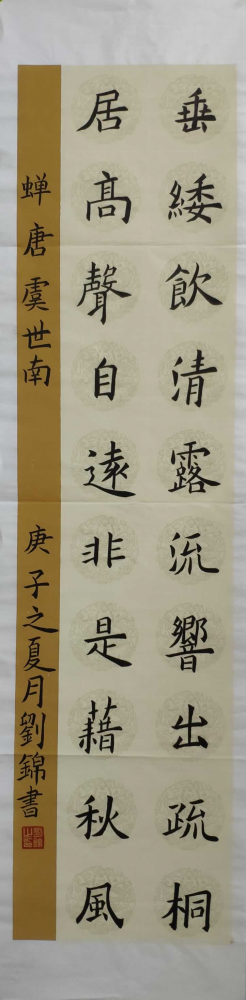 垂緌飲清露流響出疏桐
居高聲自遠非是藉秋風
蝉唐虞世南 庚子之夏月劉錦書